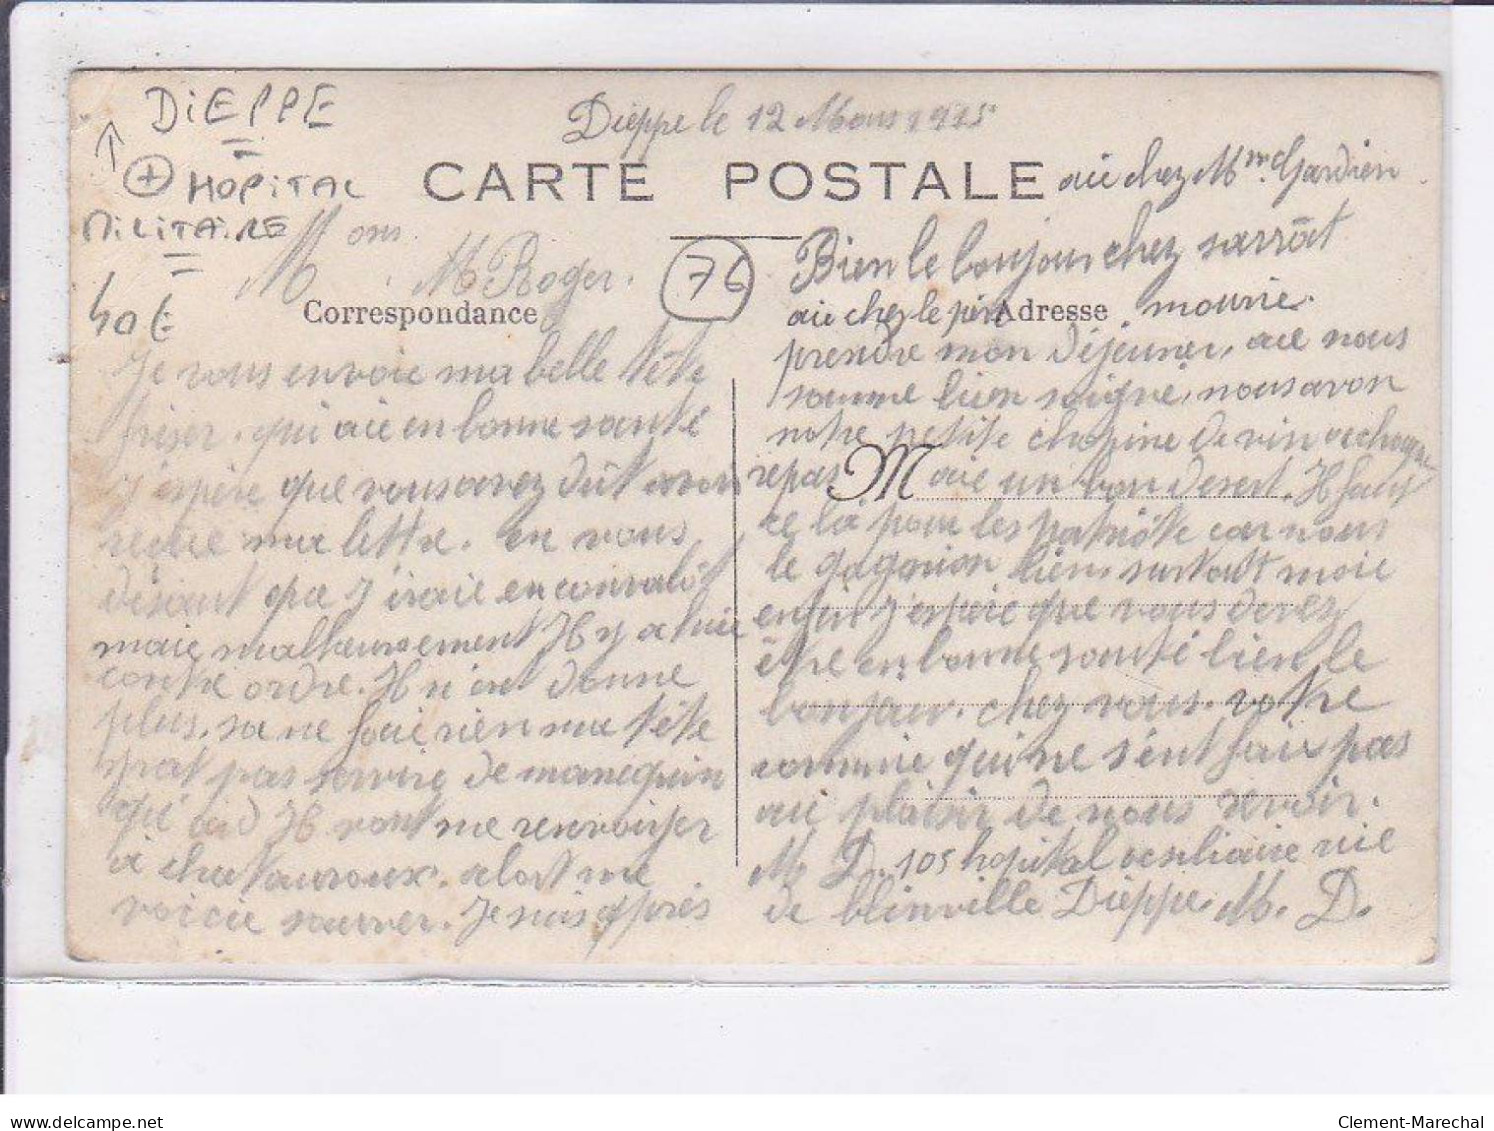 DIEPPE
Dieppe le 12 Mars 1915
CARTE POSTALE
HOPITAL
MILITAIRE
76
40€
Mons.
M Roger.
Correspondance
Je vous envoie ma belle tête
friser. qui aie en bonne santé
J'espère que vous avez dût avoir
recue ma lettre. en vous
disant que J'iraie en convalot
maie malheureusement Il y a luie
contre ordre. Il n'ent donne
plus. sa ne faie rien ma tête
pas servire de manequin
Il vont me renvoiyer
à chatauroux. alort me
voicie sauver. Je suis après
aie chez Mme Gardien
Bien le bonjour chez sarrât
aie chez le père mourie.
Adresse
prendre mon dijeuner, ace nous
somme bien soigné, nous avon
notre petite chopine de vin a chaque
repas M avie un bon desert. Il faut
ce la pour les patriôte car nous
le gagnion bien surtout moie
enfin J'espère que vous devez
être en bonne santé bien le
bonjour. chez vous. votre
commie qui ne s'ent faix pas
au plaisir de nous revoir.
M D. 105 hopital ocsiliaire rue
de blinville Dieppe. M. D.
delcampe.net
Clement-Marechal